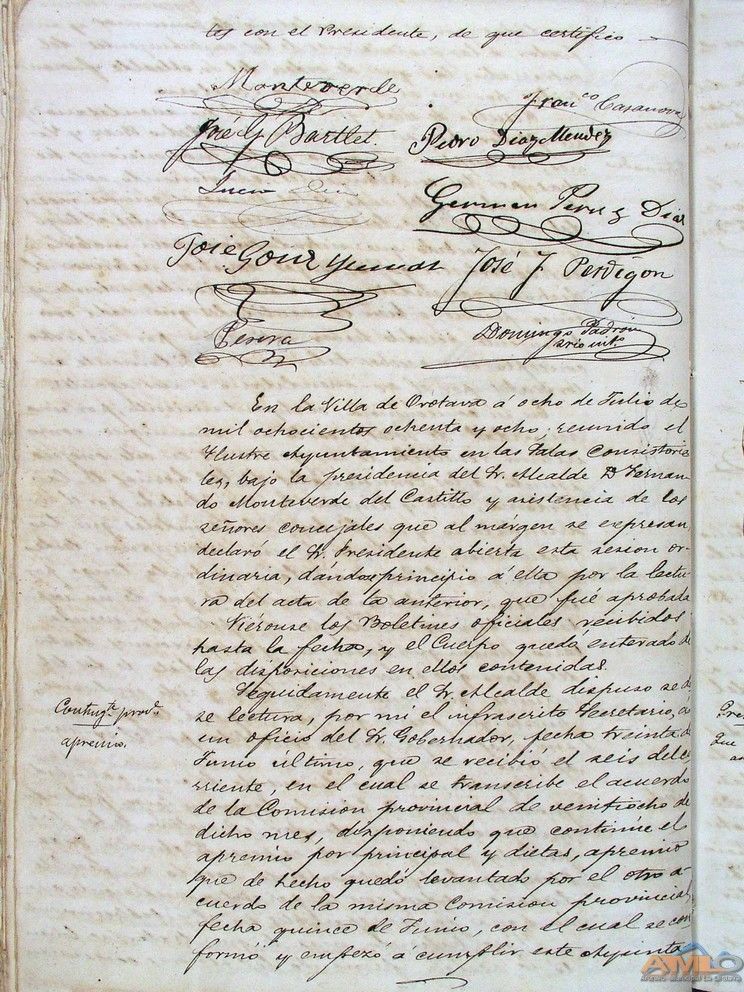 tes con el Presidente, de que certifico
Monteverde
Fran.co Casanova
José G Bartlet.
Pedro Diaz Mendez
Juan
German Perez Diaz
José Gonz
José J. Perdigon
Perera
Domingo Padrón
srio int.o
En la Villa de Orotava á ocho de Julio de
mil ochocientos ochenta y ocho reunido el
Ilustre Ayuntamiento en las Salas Consistoria
les, bajo la presidencia del Sr. Alcalde D Fernan-
do Monteverde del Castillo y asistencia de los
señores concejales que al márgen se expresan,
declaró el Sr. Presidente abierta esta sesion or-
dinaria, dándose principio á ella por la lectu-
ra del acta de la anterior, que fué aprobada
Viéronse los Boletines oficiales recibidos
hasta la fecha, y el Cuerpo quedó enterado de
las disposiciones en ellos contenidas.
Seguidamente el Sr. Alcalde dispuso se di
Conting.te prov.l
apremio.
se lectura, por mi el infrascrito Secretario, á
un oficio del Sr. Gobernador, fecha treinta de
Junio último, que se recibió el seis del co
rriente, en el cual se transcribe el acuerdo
de la Comision provincial de veintiocho de
dicho mes, disponiendo que continúe el
apremio por principal y dietas, apremio
que de hecho quedó levantado por el otro a-
cuerdo de la misma Comision provincial
fecha quince de Junio, con el cual se con
formó y empezó á cumplir este Ayunta
AMLO
Archivo Municipal La Orotava